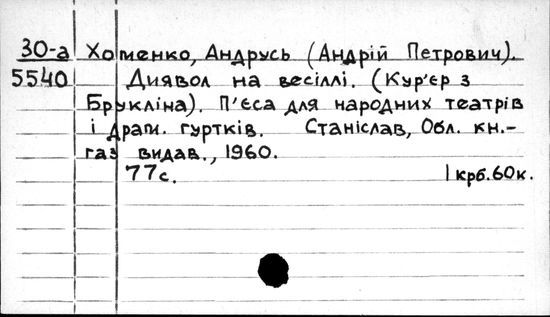 30-а Хоменко, Андрусь (Андрій Петрович).
5540 Диявол на весіллі. (Кур'єр з
Брукліна). П'єса для народних театрів
і драм. гуртків. Станіслав, Обл. кн.-
газ видав., 1960.
77с. 1 крб. 60к.